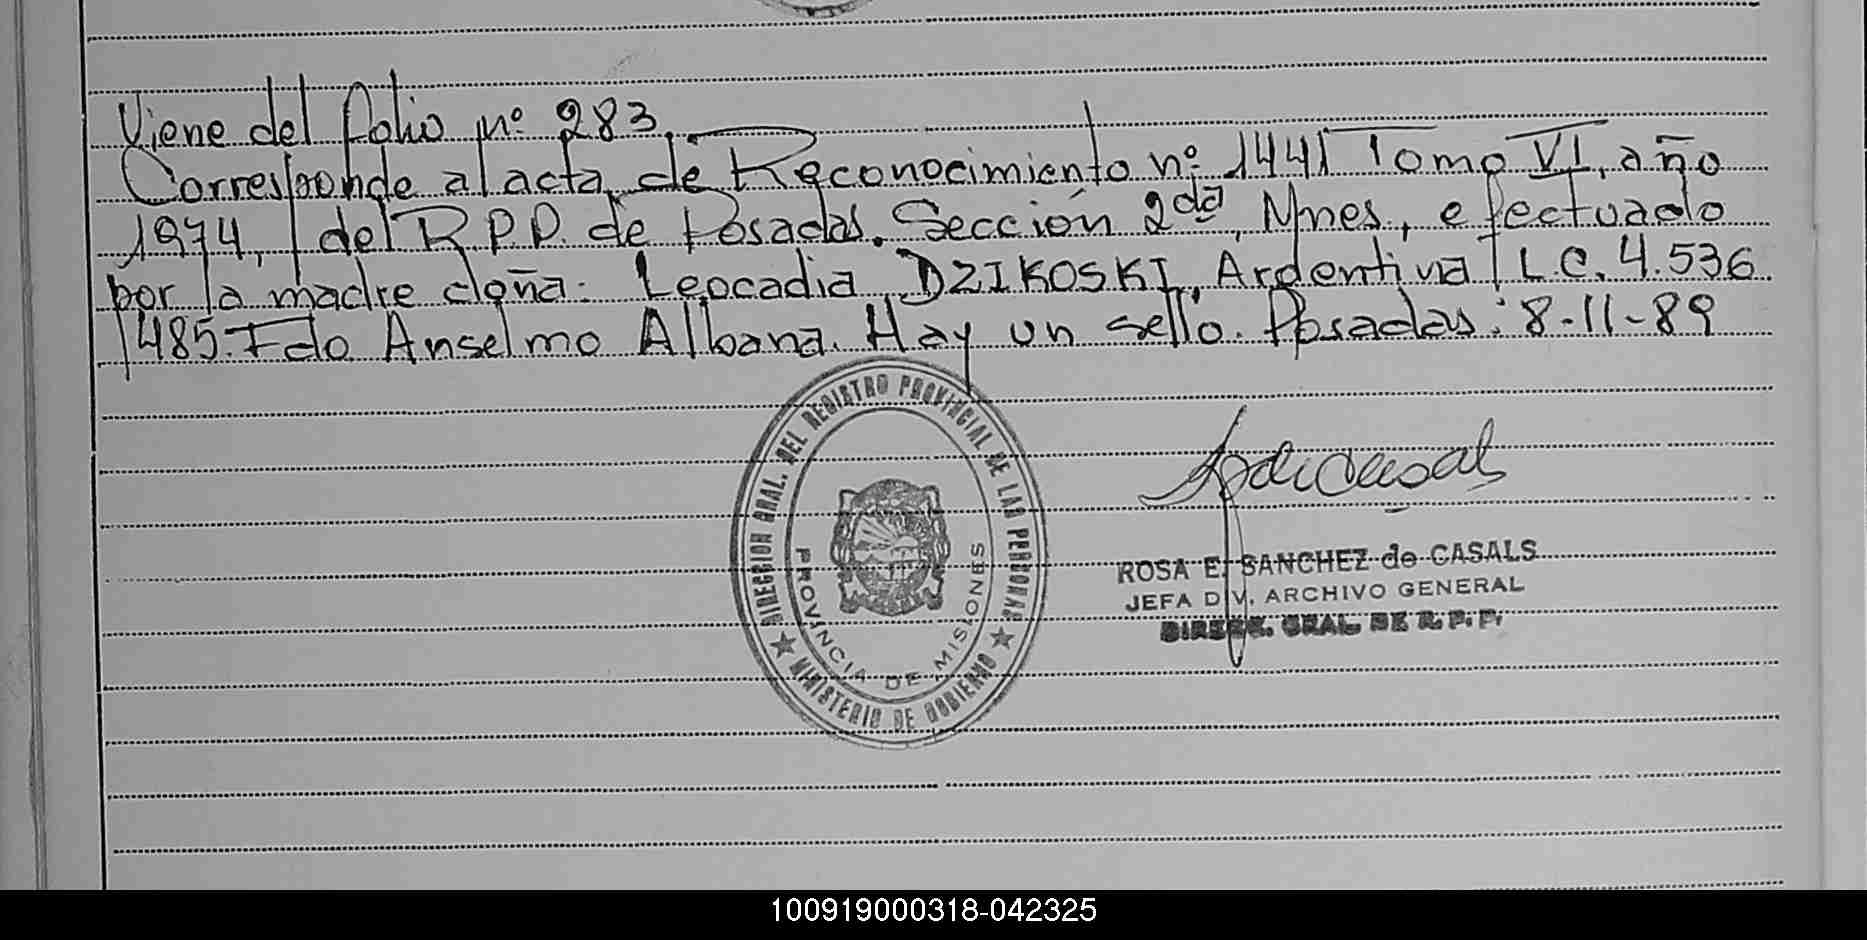 Viene del folio nº 283.
Corresponde al acta de Reconocimiento nº 1441 Tomo VI, año
1974, del R.P.P. de Posadas. Sección 2da, Mnes., efectuado
por la madre doña: Leocadia DZIKOSKI, Argentina L.C. 4.536
485. Fdo Anselmo Albana. Hay un sello. Posadas: 8-11-89
DIRECCION GRAL. DEL REGISTRO PROVINCIAL DE LAS PERSONAS
PROVINCIA DE MISIONES
★ MINISTERIO DE GOBIERNO ★
ROSA E. SANCHEZ de CASALS
JEFA DIV. ARCHIVO GENERAL
DIREC. GRAL. DE R. P. P.
100919000318-042325